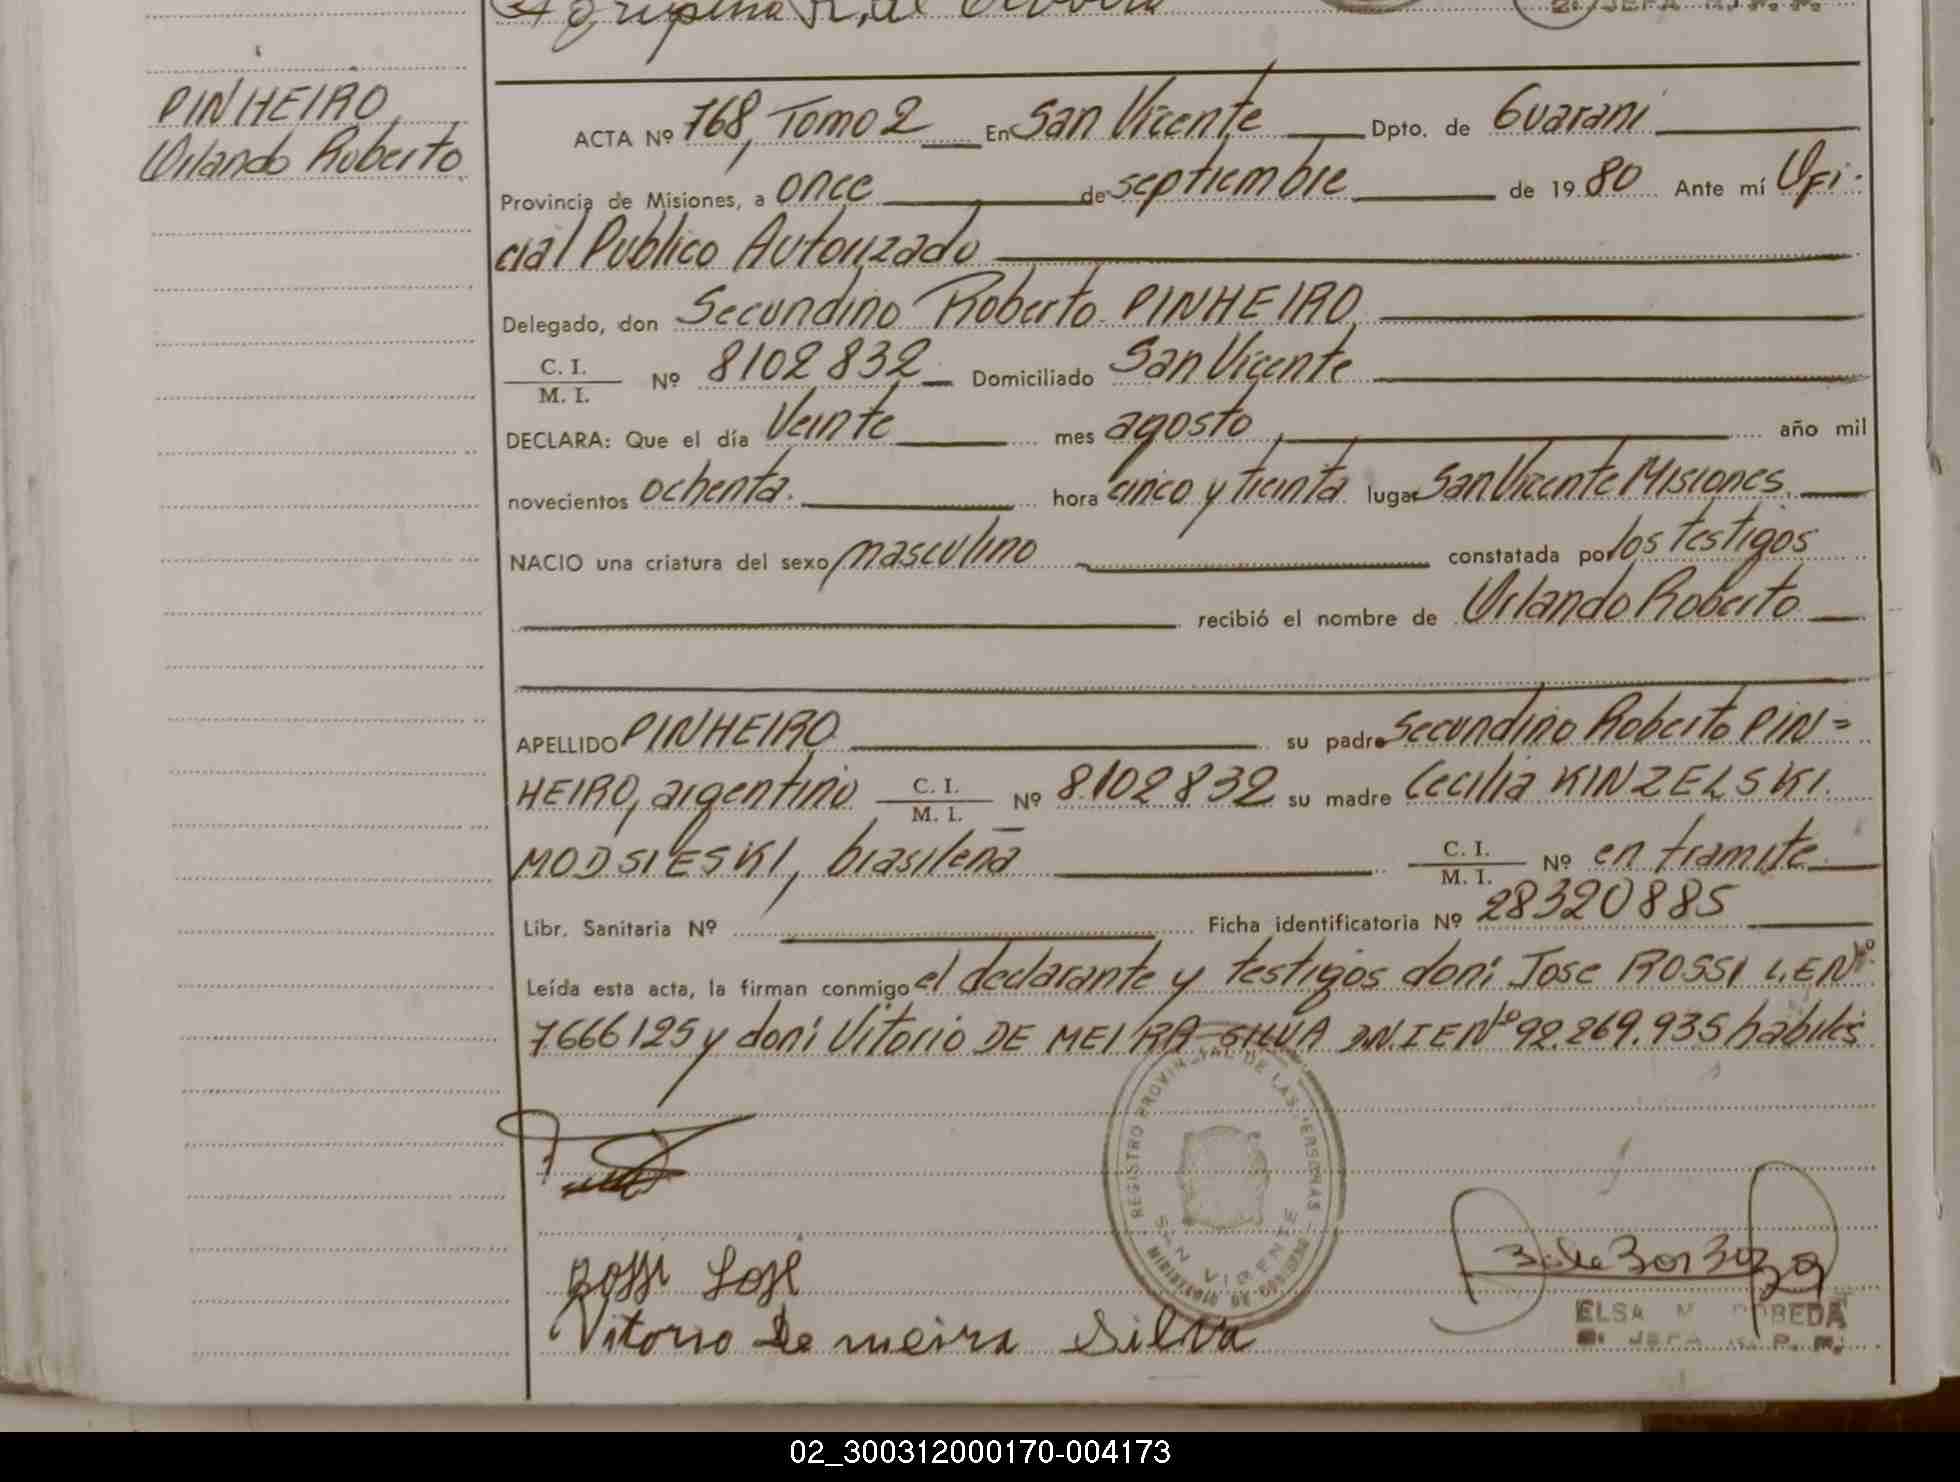 Agripina R. de
PINHEIRO,
Orlando Roberto.
ACTA Nº 768, Tomo 2 En San Vicente Dpto. de Guarani
Provincia de Misiones, a once de septiembre de 1980 Ante mí Ofi-
cial Publico Autorizado
Delegado, don Secundino Roberto PINHEIRO,
C. I.
M. I. Nº 8102832 Domiciliado San Vicente
DECLARA: Que el día Veinte mes agosto año mil
novecientos ochenta. hora cinco y treinta lugar San Vicente Misiones,
NACIO una criatura del sexo masculino constatada por los testigos
recibió el nombre de Orlando Roberto
APELLIDO PINHEIRO su padre Secundino Roberto PIN=
HEIRO, argentino C. I. M. I. Nº 8102832 su madre Cecilia KINZELSKI
MODSIESKI, brasileña C. I. M. I. Nº en tramite
Libr. Sanitaria Nº Ficha identificatoria Nº 28320885
Leída esta acta, la firman conmigo el declarante y testigos don: Jose ROSSI L.E Nº
7666125 y don: Vitorio DE MEIRA SILVA D.N.I E Nº 92.269.935 habiles
REGISTRO PROVINCIAL DE LAS PERSONAS
SAN VICENTE
MINISTERIO DE GOBIERNO
Rossi José
Vitorio De meira Silva
ELSA M.
JEFA R. P. P.
02_300312000170-004173